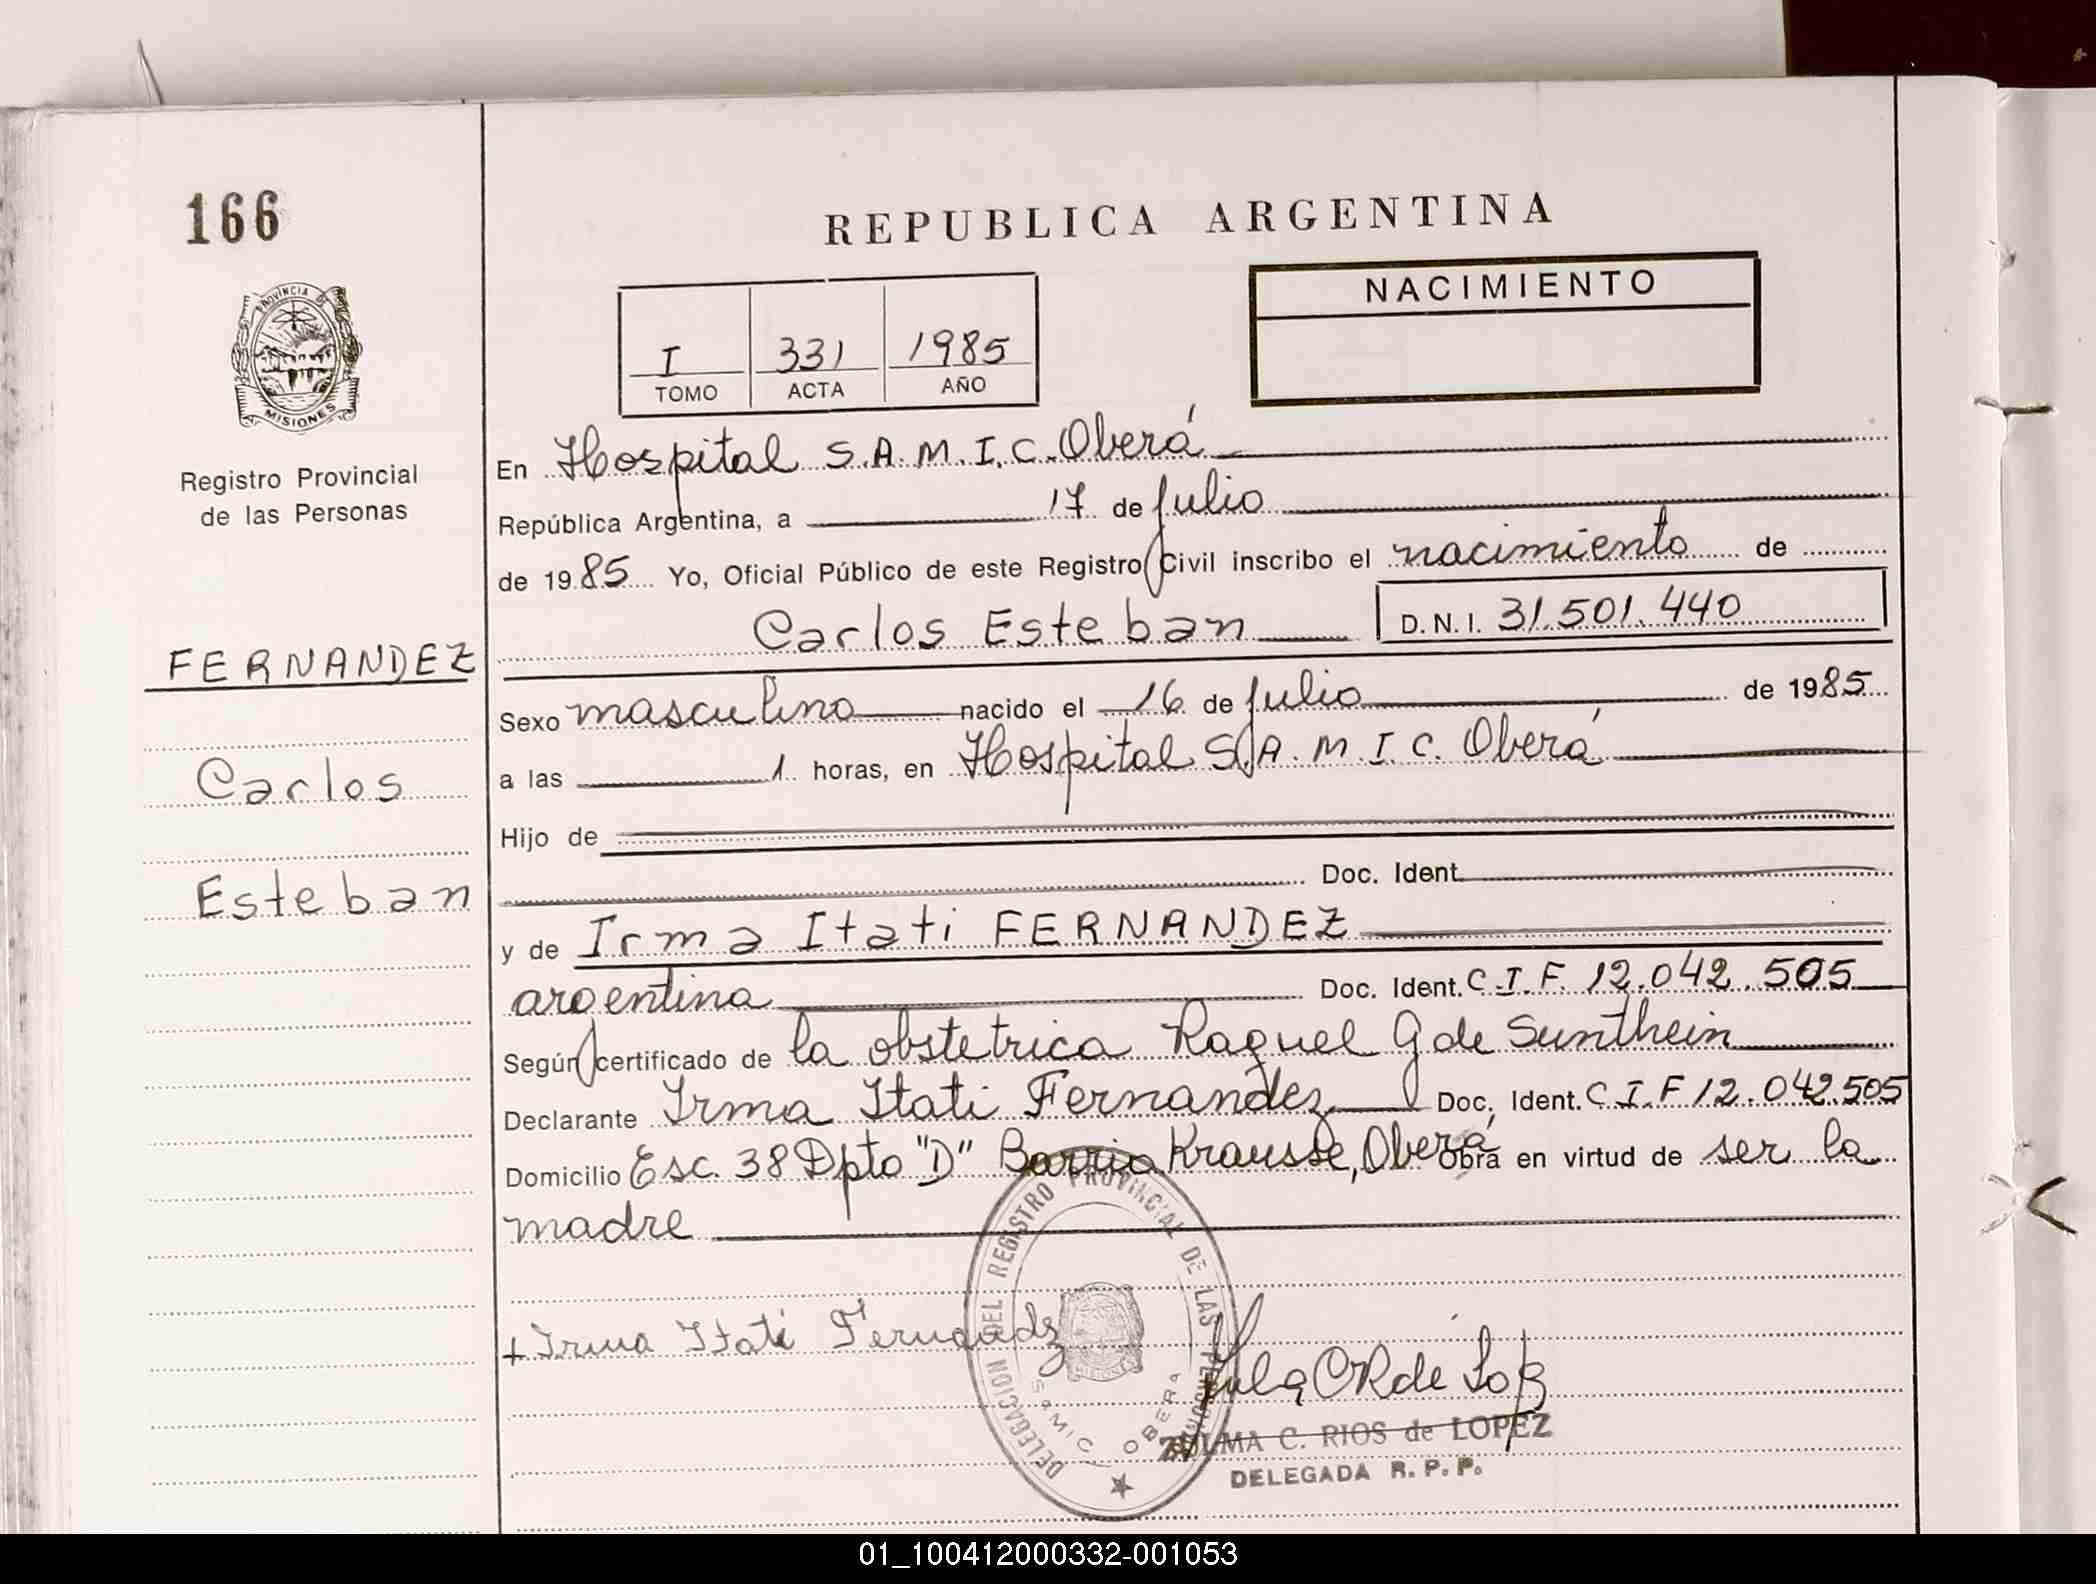 166
REPUBLICA ARGENTINA
NACIMIENTO
I 331 1985
TOMO ACTA AÑO
PROVINCIA DE
MISIONES
Registro Provincial
de las Personas
En Hospital S.A.M.I.C. Oberá
República Argentina, a 17 de Julio
de 1985 Yo, Oficial Público de este Registro Civil inscribo el nacimiento de
Carlos Esteban D.N.I. 31.501.440
FERNANDEZ
Carlos
Esteban
Sexo masculino nacido el 16 de Julio de 1985
a las 1 horas, en Hospital S.A.M.I.C. Oberá
Hijo de
Doc. Ident.
y de Irma Itati FERNANDEZ
argentina Doc. Ident. C.I.F. 12.042.505
Según certificado de la obstetrica Raquel G de Sunthein
Declarante Irma Itati Fernandez Doc. Ident. C.I.F 12.042.505
Domicilio Esc. 38 Dpto "D" Barrio Krausse, Oberá Obra en virtud de ser la
madre
+ Irma Itati Fernandez
DELEGACION DEL REGISTRO PROVINCIAL DE LAS PERSONAS
SAMIC OBERA
MISIONES
ZULMA C. RIOS de LOPEZ
DELEGADA R.P.P.
01_100412000332-001053